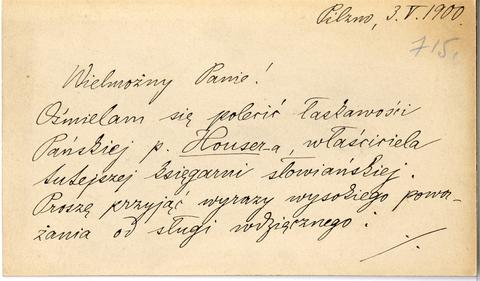 Pilzno, 3. V. 1900.
715.
Wielmożny Panie!
Ośmielam się polecić łaskawości
Pańskiej p. Houser-a, właściciela
tutejszej księgarni słowiańskiej.
Proszę przyjąć wyrazy wysokiego powa-
żania od sługi wdzięcznego: